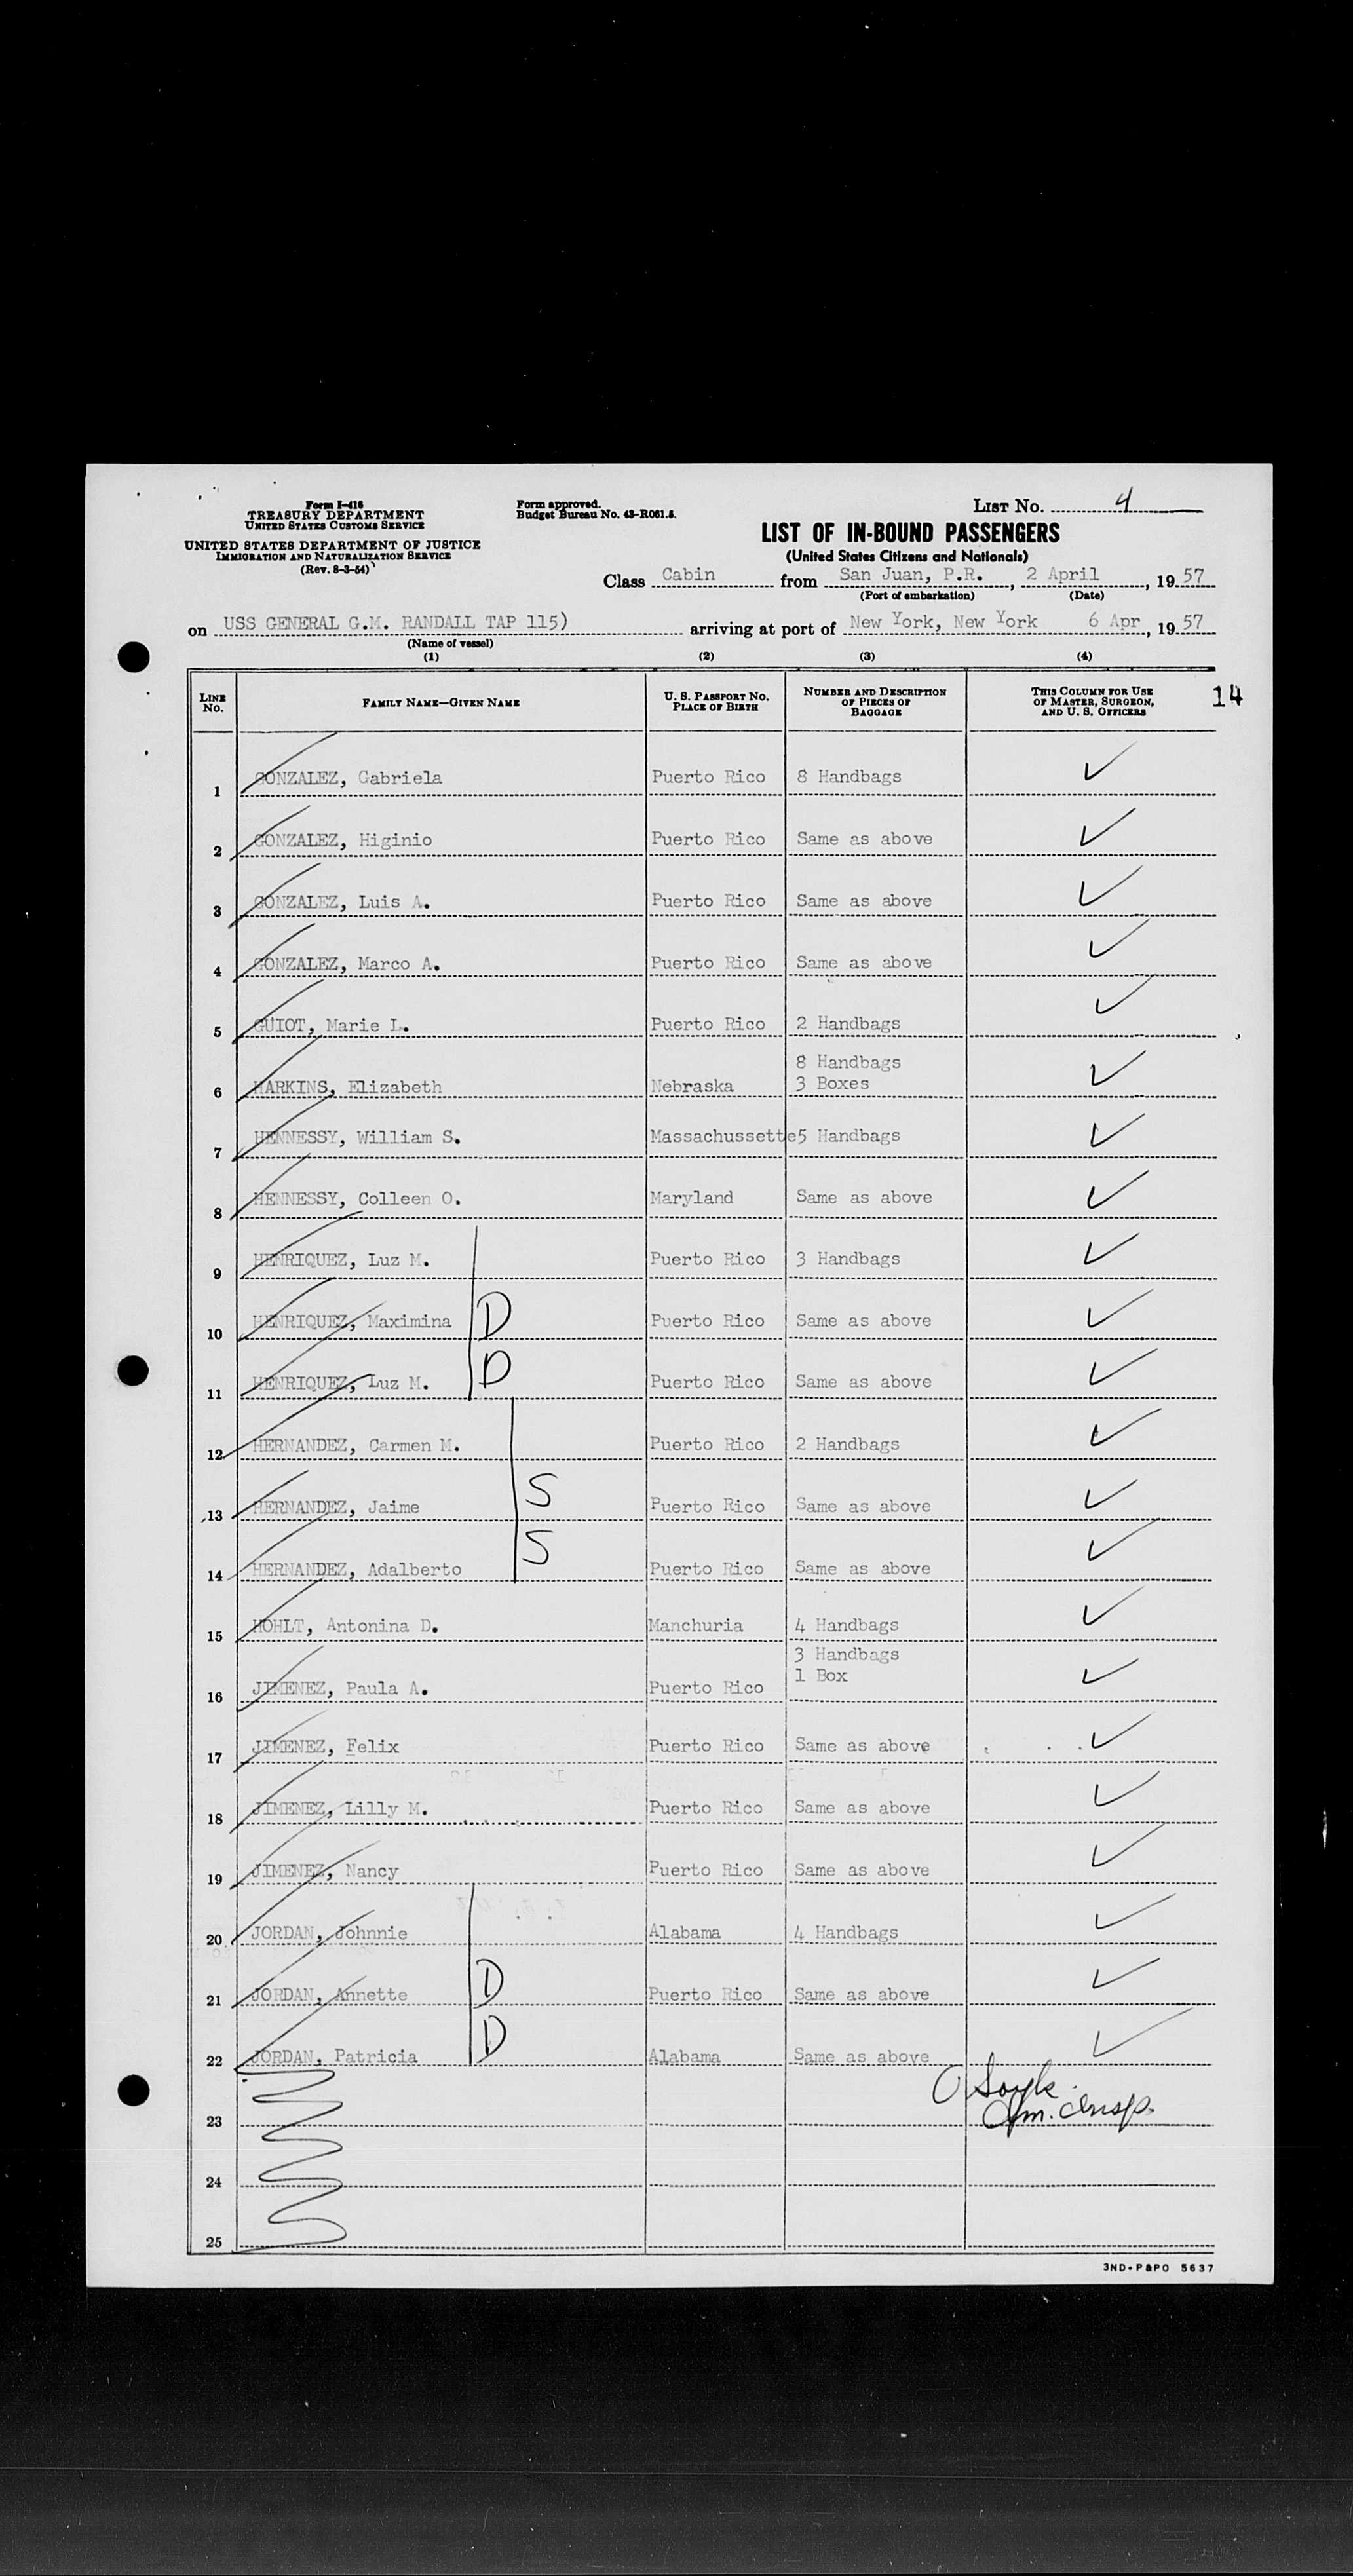 Form I-416
TREASURY DEPARTMENT
UNITED STATES CUSTOMS SERVICE
UNITED STATES DEPARTMENT OF JUSTICE
IMMIGRATION AND NATURALIZATION SERVICE
(Rev. 8-3-54)
Form approved.
Budget Bureau No. 43-R061.5.
LIST NO. 4
LIST OF IN-BOUND PASSENGERS
(United States Citizens and Nationals)
Class Cabin from San Juan, P.R., 2 April, 19 57
(Port of embarkation) (Date)
on USS GENERAL G.M. RANDALL TAP 115) arriving at port of New York, New York 6 Apr, 19 57
(Name of vessel)
(1) (2) (3) (4)
LINE NO. FAMILY NAME—GIVEN NAME U. S. PASSPORT NO. PLACE OF BIRTH NUMBER AND DESCRIPTION OF PIECES OF BAGGAGE THIS COLUMN FOR USE OF MASTER, SURGEON, AND U. S. OFFICERS 14
1 GONZALEZ, Gabriela Puerto Rico 8 Handbags ✓
2 GONZALEZ, Higinio Puerto Rico Same as above ✓
3 GONZALEZ, Luis A. Puerto Rico Same as above ✓
4 GONZALEZ, Marco A. Puerto Rico Same as above ✓
5 GUIOT, Marie L. Puerto Rico 2 Handbags ✓
6 HARKINS, Elizabeth Nebraska 8 Handbags 3 Boxes ✓
7 HENNESSY, William S. Massachussette 5 Handbags ✓
8 HENNESSY, Colleen O. Maryland Same as above ✓
9 HENRIQUEZ, Luz M. Puerto Rico 3 Handbags ✓
10 HENRIQUEZ, Maximina D Puerto Rico Same as above ✓
11 HENRIQUEZ, Luz M. D Puerto Rico Same as above ✓
12 HERNANDEZ, Carmen M. Puerto Rico 2 Handbags ✓
13 HERNANDEZ, Jaime S Puerto Rico Same as above ✓
14 HERNANDEZ, Adalberto S Puerto Rico Same as above ✓
15 HOHLT, Antonina D. Manchuria 4 Handbags ✓
16 JIMENEZ, Paula A. Puerto Rico 3 Handbags 1 Box ✓
17 JIMENEZ, Felix Puerto Rico Same as above ✓
18 JIMENEZ, Lilly M. Puerto Rico Same as above ✓
19 JIMENEZ, Nancy Puerto Rico Same as above ✓
20 JORDAN, Johnnie Alabama 4 Handbags ✓
21 JORDAN, Annette D Puerto Rico Same as above ✓
22 JORDAN, Patricia D Alabama Same as above ✓
23 Im. Insp.
24
25
3ND-P&PO 5637